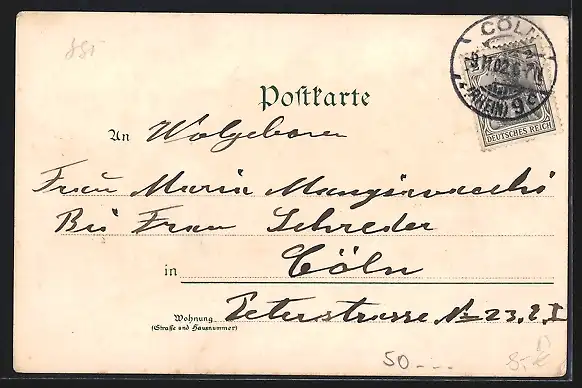 895
CÖLN
9.11.02.6-7N
(RHEIN) 9
DEUTSCHES REICH
Postkarte
An Wolgeboren
Frau Maria Mangiavacchi
Bei Frau Schreder
in Cöln
Wohnung Peterstrasse No 23, 2. I
(Straße und Hausnummer)
50 ---